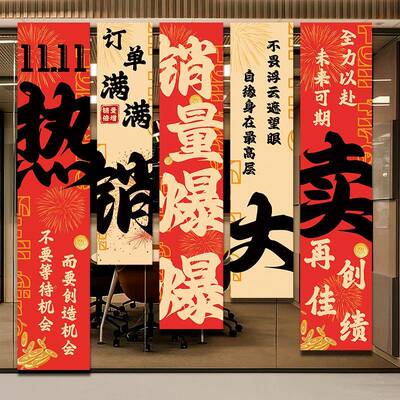 11.11
热
不要等待机会
而要创造机会
订单
满满
销量
倍增
销
销量爆爆
不畏浮云遮望眼
自缘身在最高层
大
全力以赴
未来可期
卖
再创
佳绩